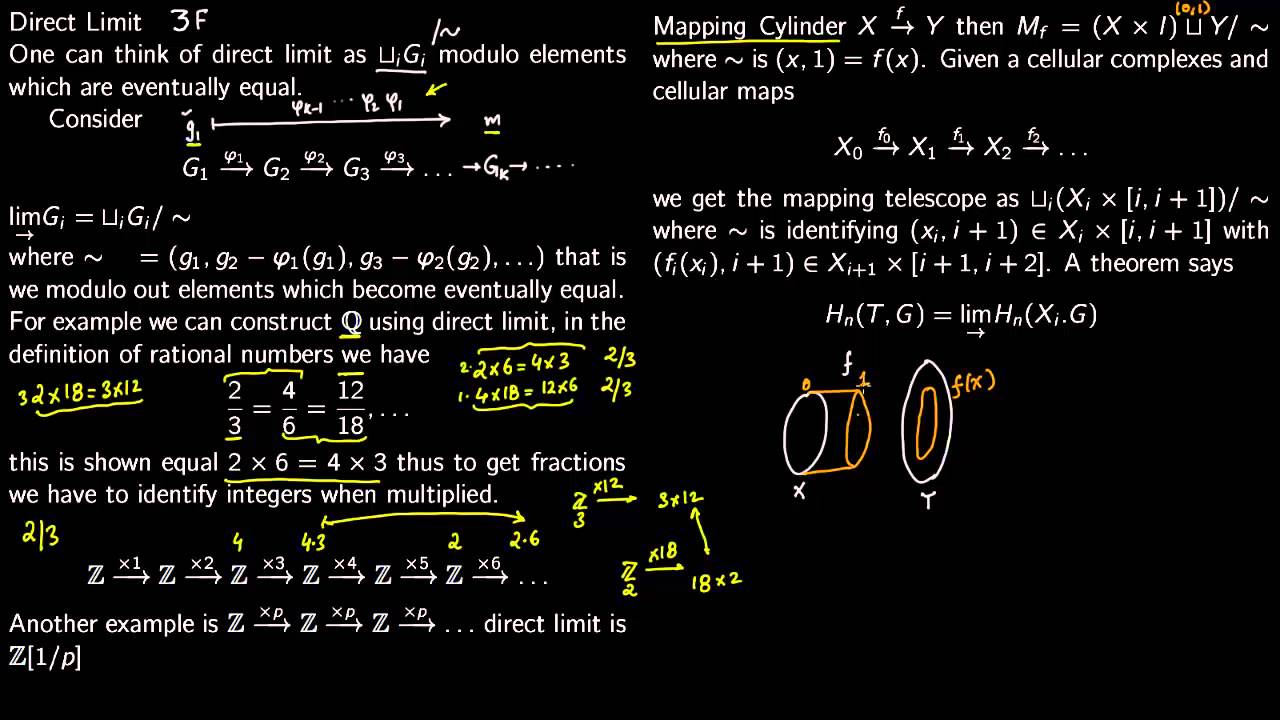 Direct Limit 3F
One can think of direct limit as ⊔ᵢGᵢ /~ modulo elements
which are eventually equal.
φₖ₋₁ ⋯ φ₂ φ₁
Consider g₁ ⟼ m
G₁ →^φ₁ G₂ →^φ₂ G₃ →^φ₃ … → Gₖ → ⋯
lim→ Gᵢ = ⊔ᵢGᵢ/ ∼
where ∼ = (g₁, g₂ − φ₁(g₁), g₃ − φ₂(g₂), …) that is
we modulo out elements which become eventually equal.
For example we can construct ℚ using direct limit, in the
definition of rational numbers we have
2·2×6=4×3 2/3
1·4×18=12×6 2/3
3 2×18=3×12
2/3 = 4/6 = 12/18, …
this is shown equal 2 × 6 = 4 × 3 thus to get fractions
we have to identify integers when multiplied.
ℤ ×12 → 3×12
3
2/3
4 4·3 2 2·6
ℤ ×18 → 18×2
2
ℤ →^×1 ℤ →^×2 ℤ →^×3 ℤ →^×4 ℤ →^×5 ℤ →^×6 …
Another example is ℤ →^×p ℤ →^×p ℤ →^×p … direct limit is
ℤ[1/p]
(0,1)
Mapping Cylinder X →^f Y then M_f = (X × I) ⊔ Y/ ∼
where ∼ is (x, 1) = f(x). Given a cellular complexes and
cellular maps
X₀ →^f₀ X₁ →^f₁ X₂ →^f₂ …
we get the mapping telescope as ⊔ᵢ(Xᵢ × [i, i + 1])/ ∼
where ∼ is identifying (xᵢ, i + 1) ∈ Xᵢ × [i, i + 1] with
(fᵢ(xᵢ), i + 1) ∈ Xᵢ₊₁ × [i + 1, i + 2]. A theorem says
Hₙ(T, G) = lim→ Hₙ(Xᵢ.G)
f
0 1 f(x)
X Y